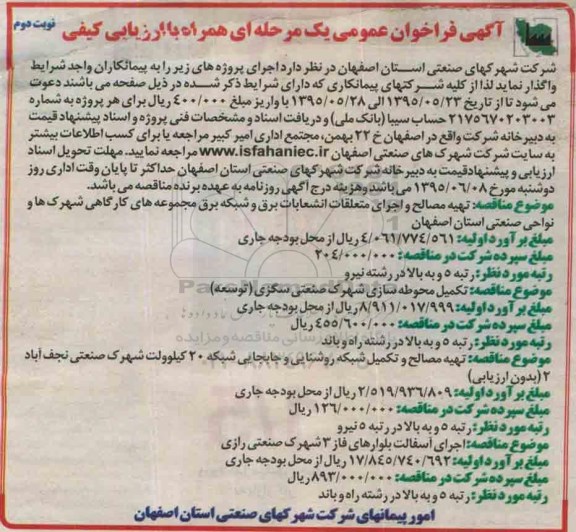 آگهی فراخوان عمومی یک مرحله ای همراه با ارزیابی کیفی
نوبت دوم
شرکت شهرکهای صنعتی استان اصفهان در نظر دارد اجرای پروژه های زیر را به پیمانکاران واجد شرایط
واگذار نماید لذا از کلیه شرکتهای پیمانکاری که دارای شرایط ذکر شده در ذیل صفحه می باشند دعوت
می شود تا از تاریخ ۱۳۹۵/۰۵/۲۳ الی ۱۳۹۵/۰۵/۲۸ با واریز مبلغ ۴۰۰/۰۰۰ ریال برای هر پروژه به شماره
۲۱۷۵۶۷۰۲۰۳۰۰۳ حساب سیبا (بانک ملی) و دریافت اسناد و مشخصات فنی پروژه و اسناد پیشنهاد قیمت
به دبیرخانه شرکت واقع در اصفهان خ ۲۲ بهمن، مجتمع اداری امیر کبیر مراجعه یا برای کسب اطلاعات بیشتر
به سایت شرکت شهرک های صنعتی اصفهان www.isfahaniec.ir مراجعه نمایید. مهلت تحویل اسناد
ارزیابی و پیشنهاد قیمت به دبیر خانه شرکت شهرکهای صنعتی استان اصفهان حداکثر تا پایان وقت اداری روز
دوشنبه مورخ ۱۳۹۵/۰۶/۰۸ می باشد وهزینه درج آگهی روزنامه به عهده برنده مناقصه می باشد.
موضوع مناقصه: تهیه مصالح و اجرای متعلقات انشعابات برق و شبکه برق مجموعه های کارگاهی شهرک ها و
نواحی صنعتی استان اصفهان
مبلغ برآورد اولیه: ۴/۰۶۱/۷۷۴/۵۶۱ ریال از محل بودجه جاری
مبلغ سپرده شرکت در مناقصه: ۲۰۴/۰۰۰/۰۰۰ ریال
رتبه مورد نظر: رتبه ۵ و به بالا در رشته نیرو
موضوع مناقصه: تکمیل محوطه سازی شهرک صنعتی سگزی (توسعه)
مبلغ برآورد اولیه: ۸/۹۱۱/۰۱۷/۹۹۹ ریال از محل بودجه جاری
مبلغ سپرده شرکت در مناقصه: ۴۵۵/۶۰۰/۰۰۰ ریال
رتبه مورد نظر: رتبه ۵ و به بالا در رشته راه و باند
موضوع مناقصه: تهیه مصالح و تکمیل شبکه روشنایی و جابجایی شبکه ۲۰ کیلوولت شهرک صنعتی نجف آباد
۲ (بدون ارزیابی)
مبلغ برآورد اولیه: ۲/۵۱۹/۹۳۶/۸۰۹ ریال از محل بودجه جاری
مبلغ سپرده شرکت در مناقصه: ۱۲۶/۰۰۰/۰۰۰ ریال
رتبه مورد نظر: رتبه ۵ و به بالا در رتبه ۵ نیرو
موضوع مناقصه: اجرای آسفالت بلوارهای فاز ۳ شهرک صنعتی رازی
مبلغ برآورد اولیه: ۱۷/۸۴۵/۷۴۰/۶۹۲ ریال از محل بودجه جاری
مبلغ سپرده شرکت در مناقصه: ۸۹۳/۰۰۰/۰۰۰ ریال
رتبه مورد نظر: رتبه ۵ و به بالا در رشته راه و باند
امور پیمانهای شرکت شهرکهای صنعتی استان اصفهان